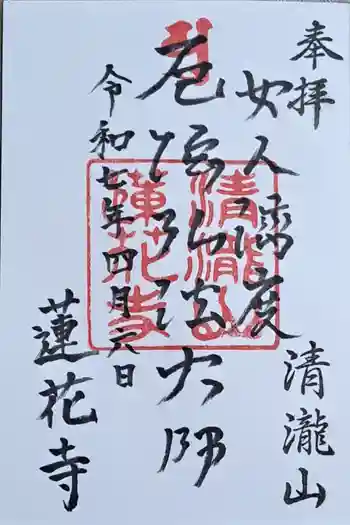 奉拝
清瀧山
女人済度
厄除弘法大師
令和七年四月六日
蓮花寺
清瀧山
蓮花寺